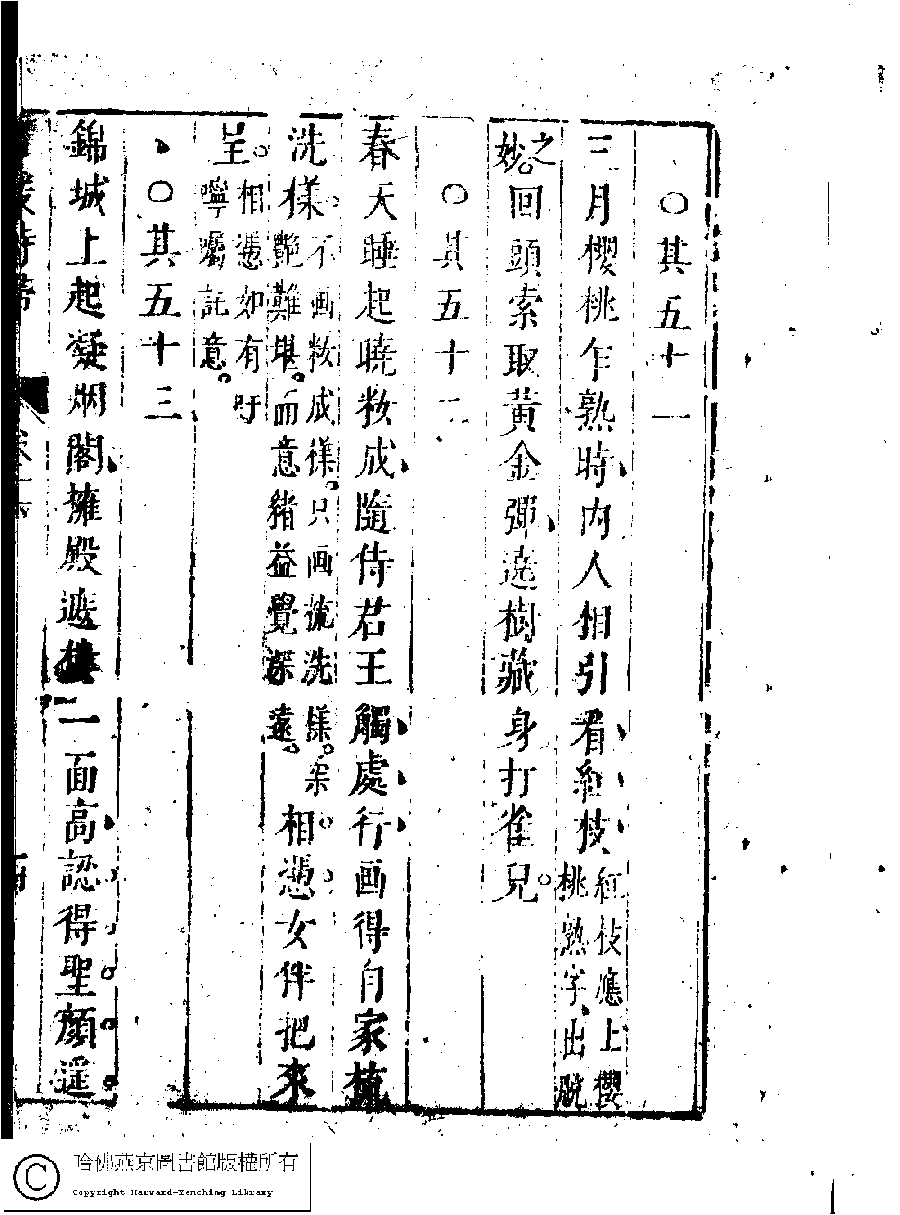 ○其五十一
三月櫻桃乍熟時内人相引看紅枝紅枝應上櫻桃熟字出脱
之妙回頭索取黃金彈遶樹藏身打雀兒
○其五十二
春天睡起曉妝成隨侍君王觸處行画得自家梳
洗樣不画妝成樣只画梳洗樣朵艷難堪而意緒益覺深遠相憑女伴把來
呈相憑如有吁嚀囑託意
○其五十三
錦城上起凝烟閣擁殿遮樓一面高認得聖顏遥
哈佛燕京圖書館版權所有
Copyright Harvard-Yenching Library